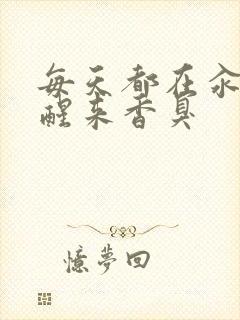 每天都在汆
醒来香臭
憶夢回